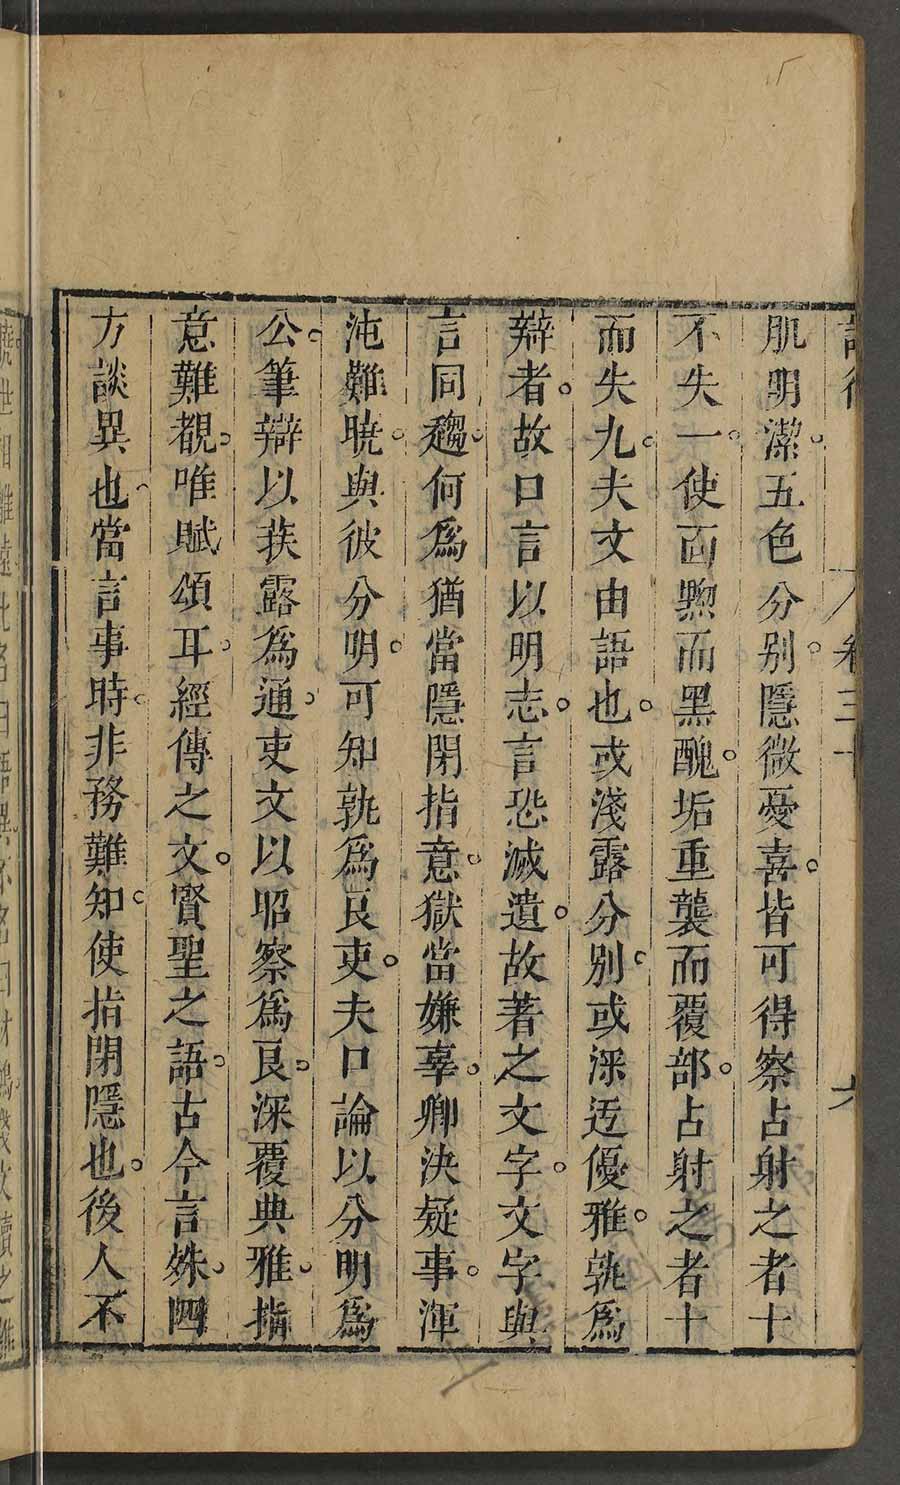 肌明潔五色分别隱微憂喜皆可得察占射之者十
不失一使面黝而黑醜垢重襲而覆部占射之者十
而失九夫文由語也或淺露分别或深迃優雅孰爲
辯者故口言以明志言恐滅遺故著之文字文字與
言同趨何爲猶當隱閉指意獄當嫌辜卿決疑事渾
沌難曉與彼分明可知孰爲良吏夫口論以分明爲
公筆辯以荴露爲通吏文以昭察爲良深覆典雅指
意難覩唯賦頌耳經傳之文賢聖之語古今言殊四
方談異也當言事時非務難知使指閉隱也後人不